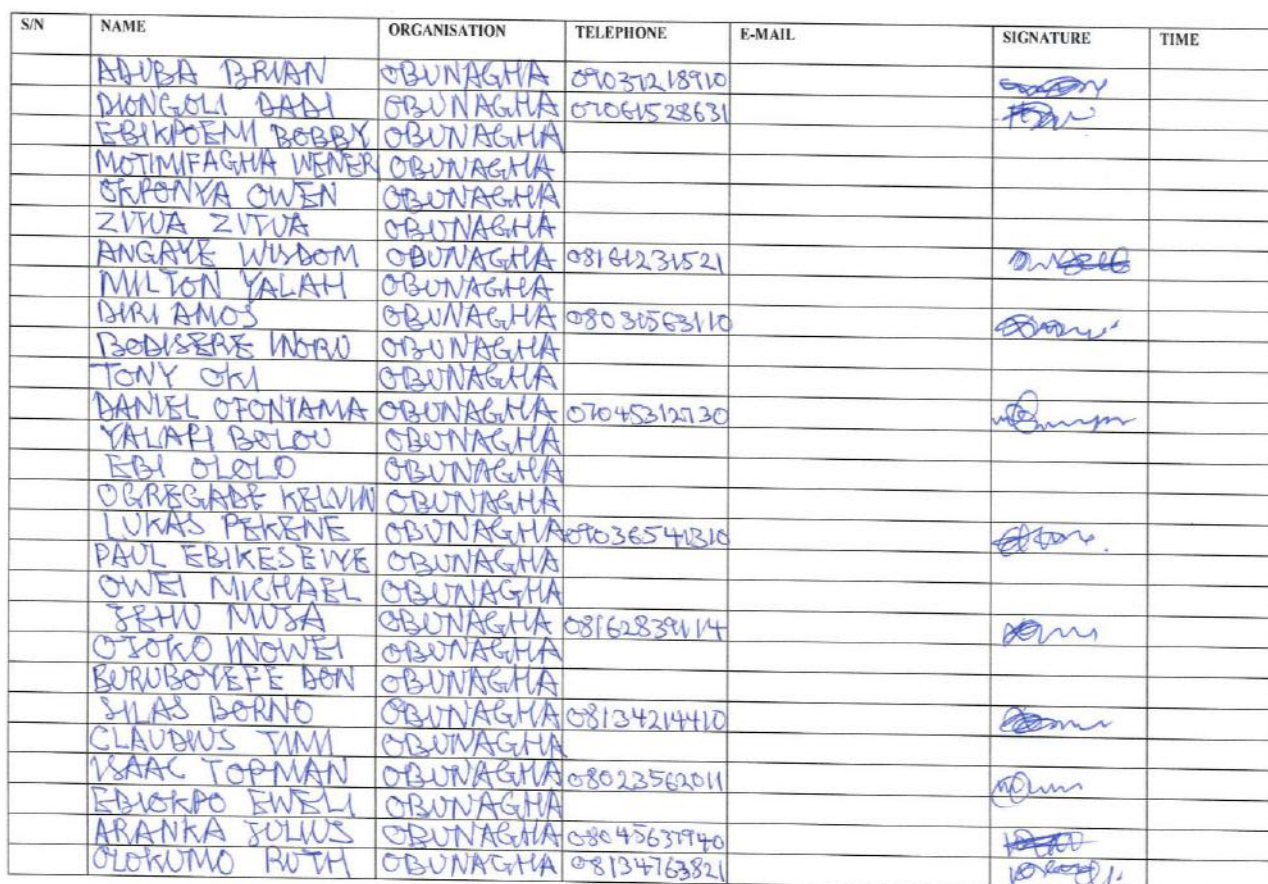 S/N NAME ORGANISATION TELEPHONE E-MAIL SIGNATURE TIME
ADUBA BRIAN OBUNAGHA 09037218910
DIONGOLI DADI OBUNAGHA 07061528631
EBIKPOEMI BOBBY OBUNAGHA
MOTIMIFAGHA WENER OBUNAGHA
OKPONYA OWEN OBUNAGHA
ZITUA ZITUA OBUNAGHA
ANGAYE WISDOM OBUNAGHA 08161231521
MILTON YALAH OBUNAGHA
DIRI AMOS OBUNAGHA 08031563110
BODISERE INORU OBUNAGHA
TONY OKI OBUNAGHA
DANIEL OFONIAMA OBUNAGHA 07045312730
YALAPI BOLOU OBUNAGHA
EBI OLOLO OBUNAGHA
OGREGADE KELVIN OBUNAGHA
LUKAS PEKENE OBUNAGHA 09036541310
PAUL EBIKESEIYE OBUNAGHA
OWEI MICHAEL OBUNAGHA
JEHU MUSA OBUNAGHA 08162839114
OJOKO INOWEI OBUNAGHA
BURUBOYEFE DON OBUNAGHA
SILAS BORNO OBUNAGHA 08134214410
CLAUDIUS TIMI OBUNAGHA
ISAAC TOPMAN OBUNAGHA 08023562011
EBIOKPO EWELI OBUNAGHA
ARANKA JULIUS OBUNAGHA 08045637940
OLOKUMO RUTH OBUNAGHA 08134763821